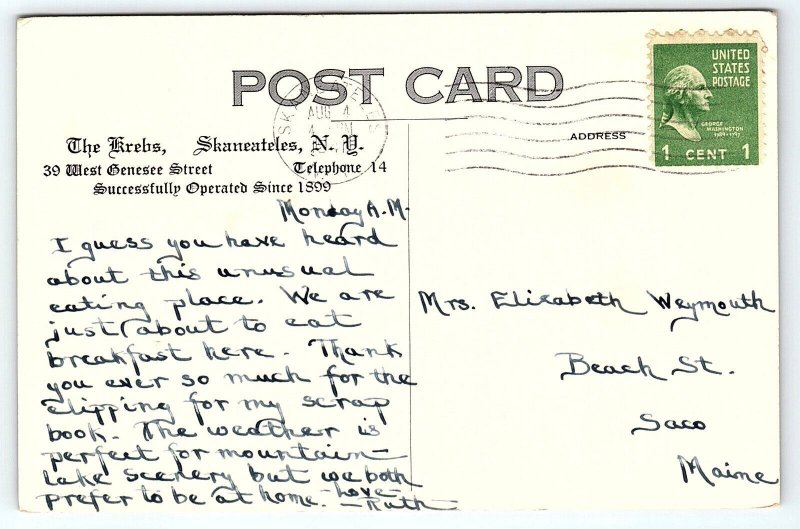 POST CARD
UNITED
STATES
POSTAGE
GEORGE
WASHINGTON
1789-1797
1 CENT 1
AUG 4
ADDRESS
The Krebs, Skaneateles, N. Y.
39 West Genesee Street Telephone 14
Successfully Operated Since 1899
Monday A.M.
I guess you have heard
about this unusual
eating place. We are
just about to eat
breakfast here. Thank
you ever so much for the
clipping for my scrap
book. The weather is
perfect for mountain-
lake scenery but we both
prefer to be at home. -Love-
-Ruth-
Mrs. Elizabeth Weymouth
Beach St.
Saco
Maine